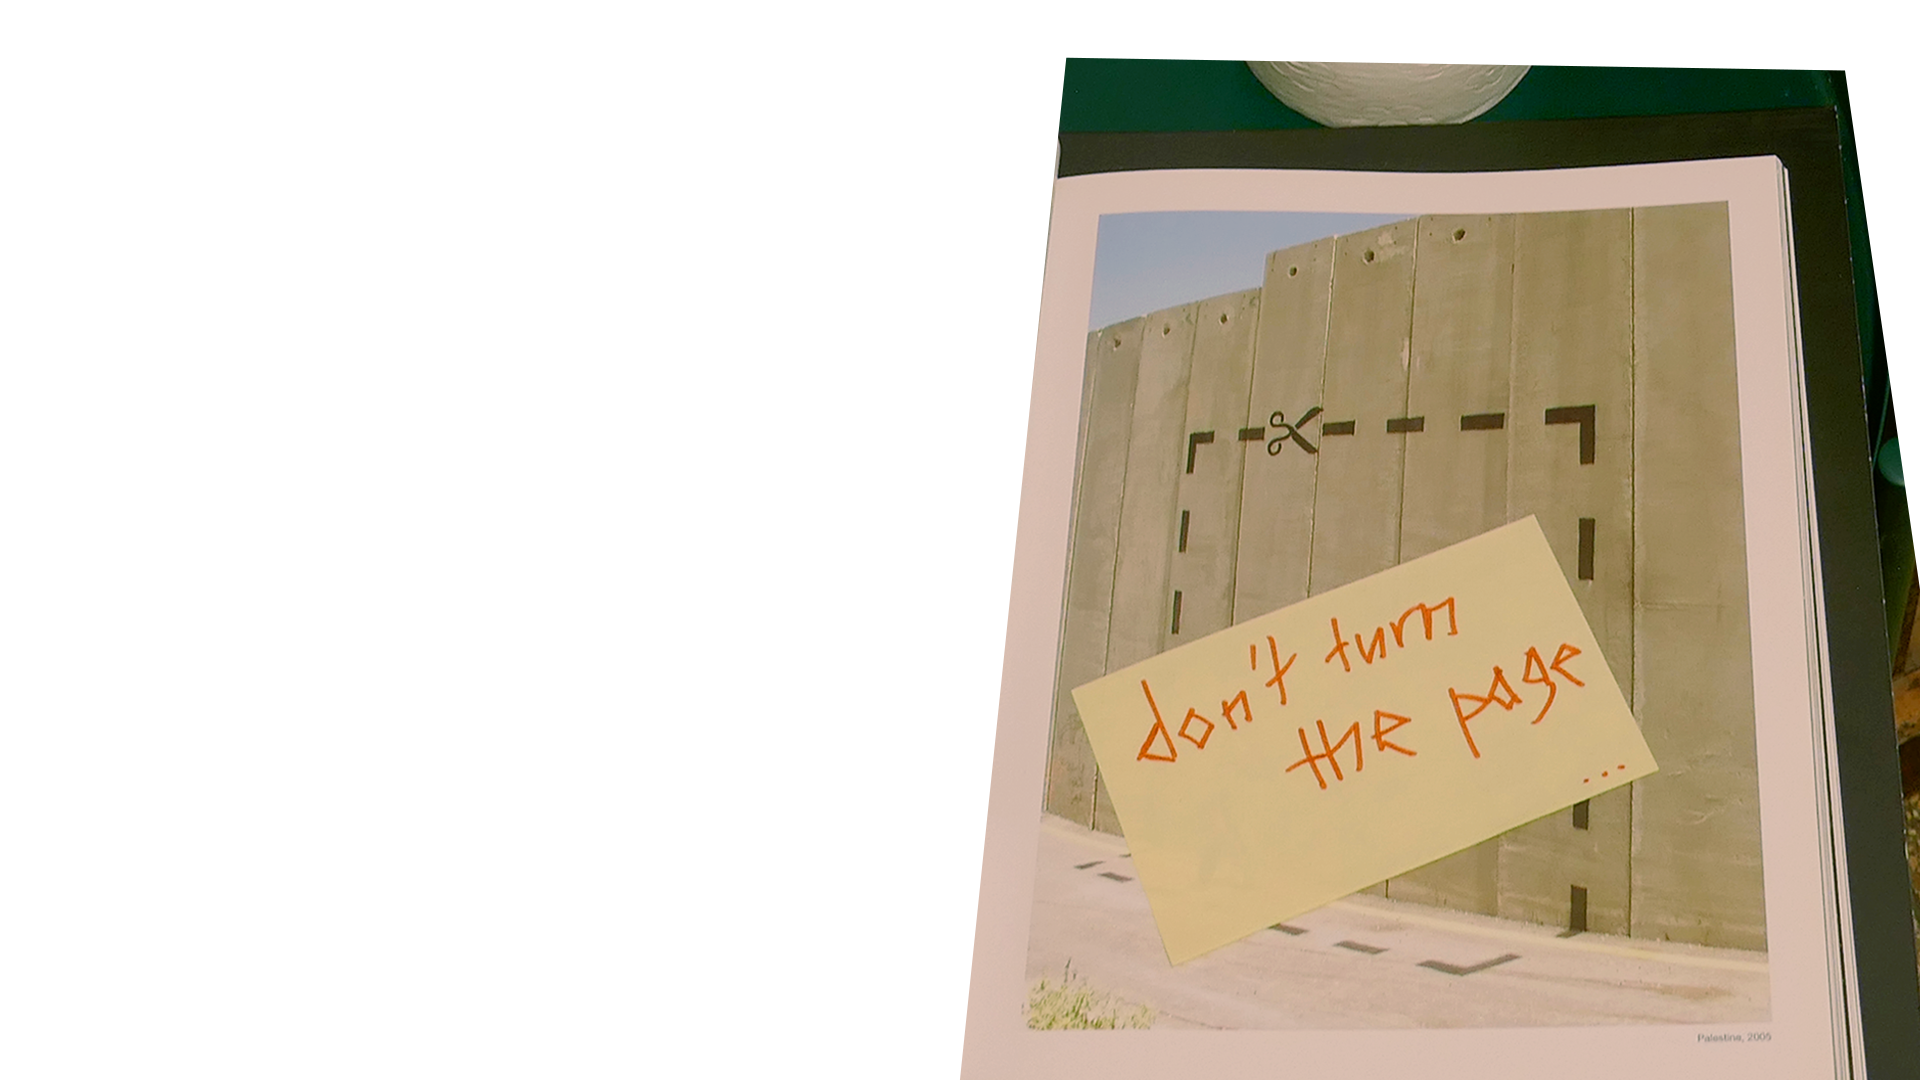 don't turn
the page
...
Palestine, 2005